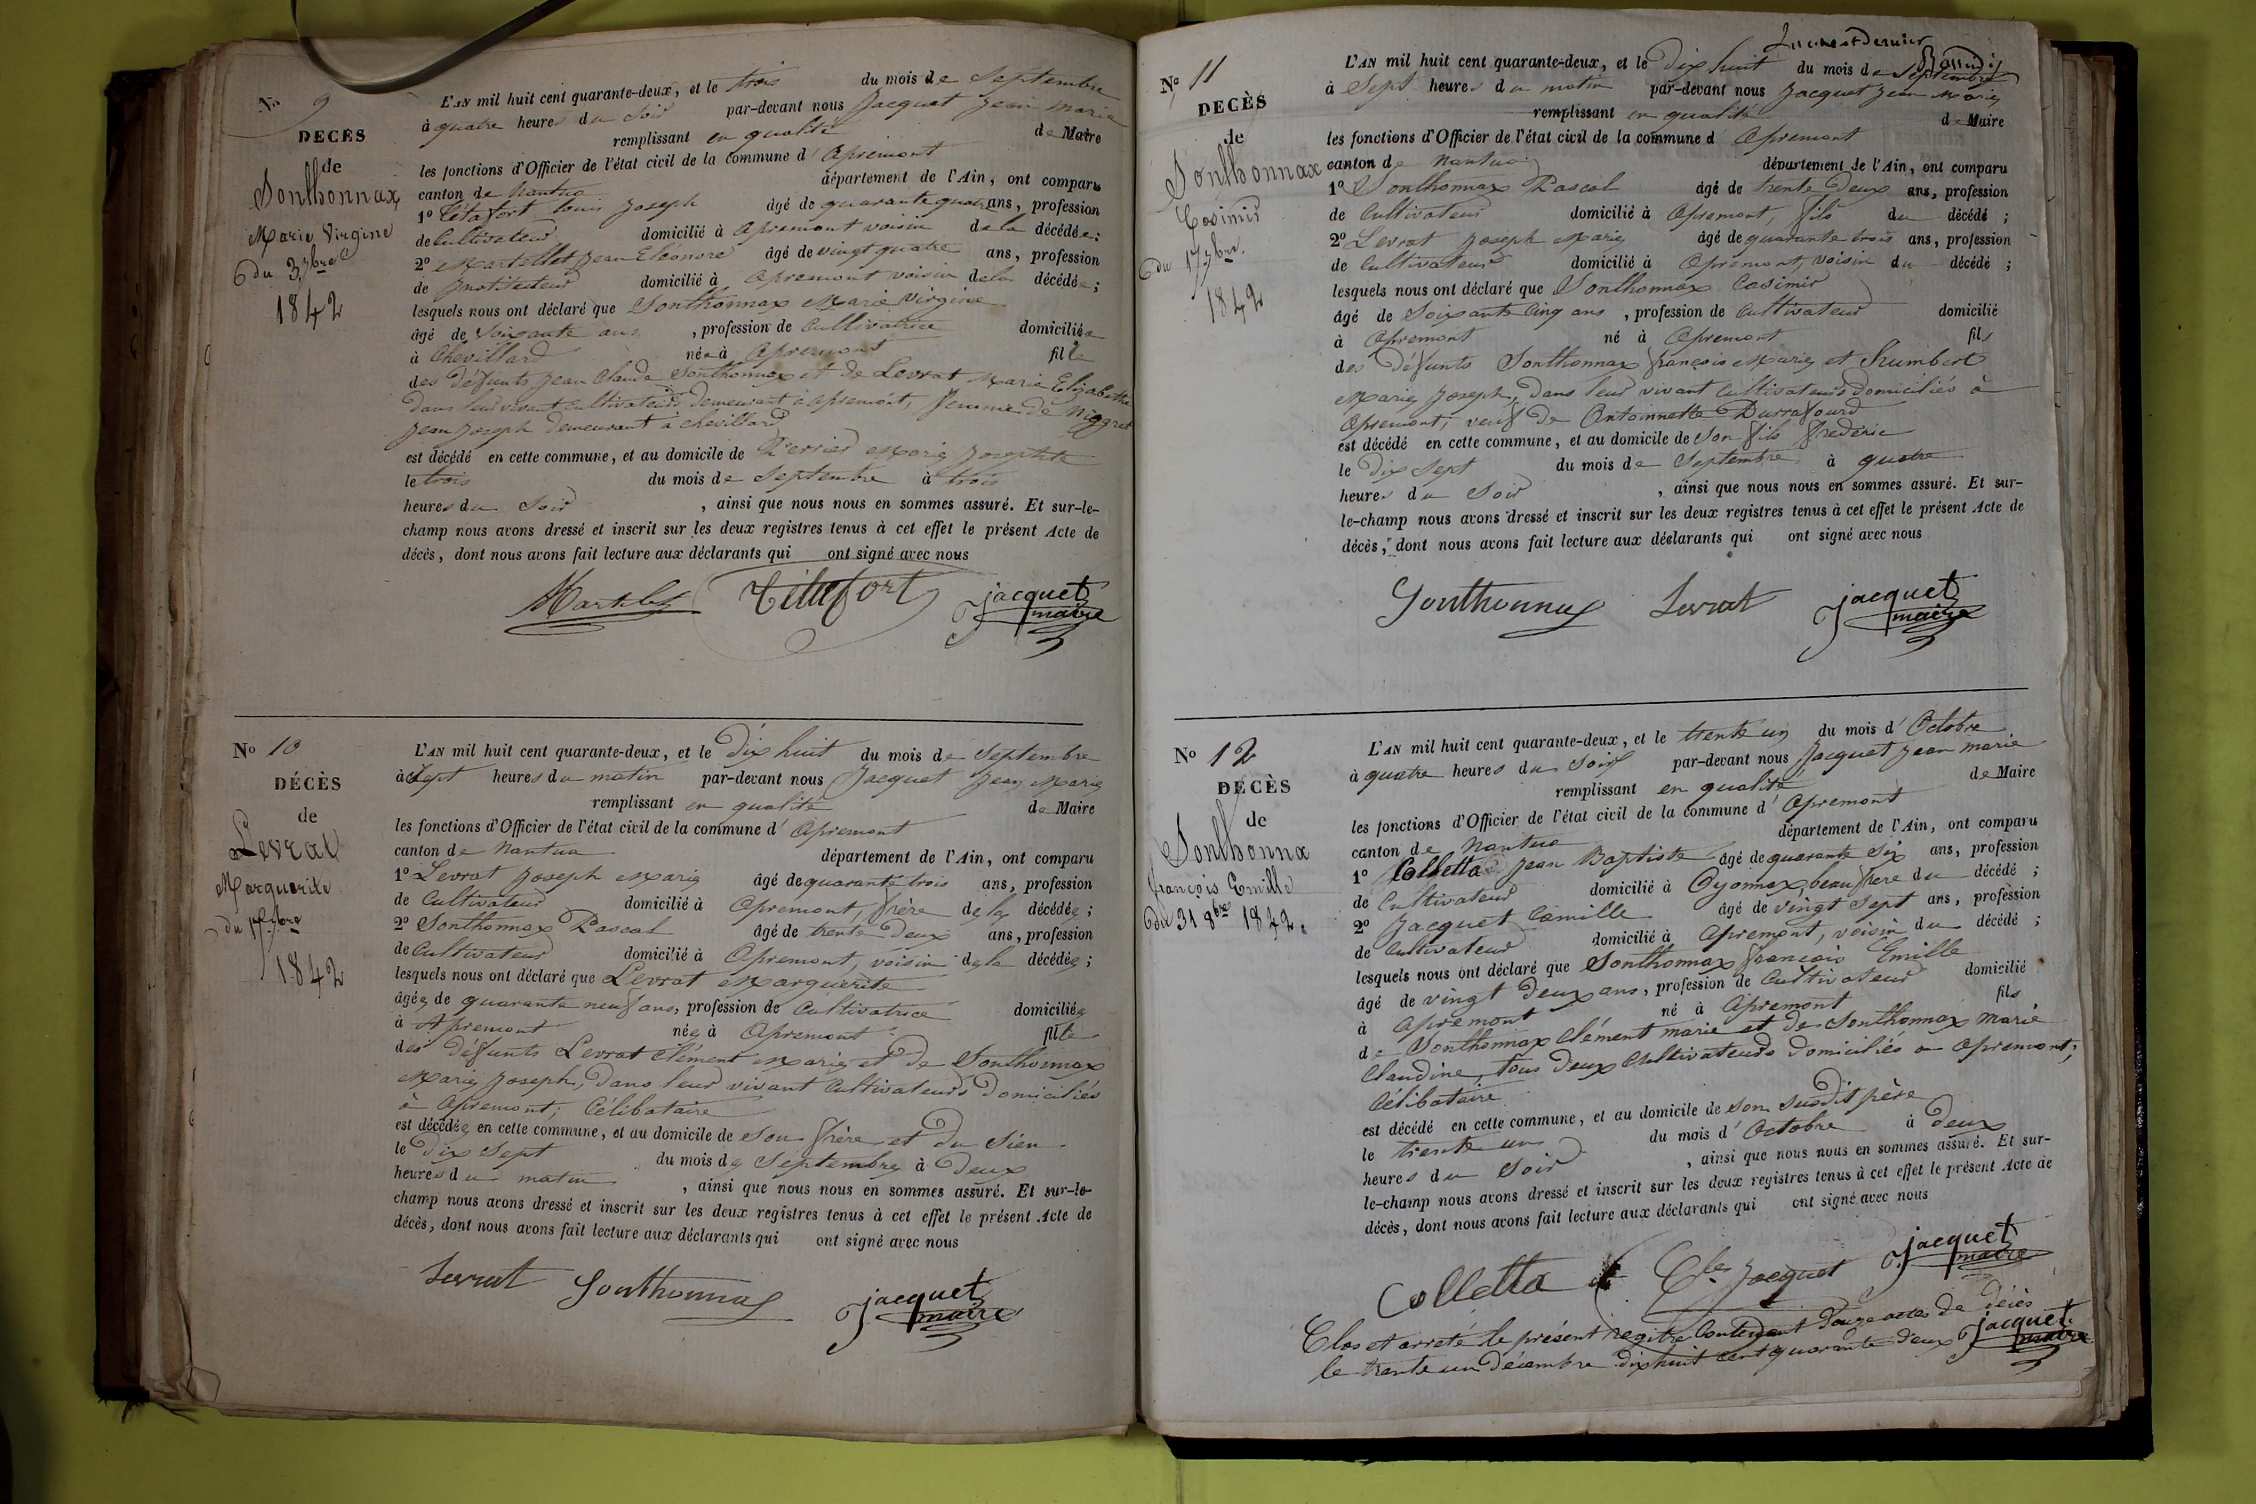 No 9
DECÈS
de
Sonthonnax
Marie Virgine
du 3 7bre
1842
L'AN mil huit cent quarante-deux, et le trois du mois de Septembre
à quatre heures du Soir par-devant nous Jacquet Jean Marie
remplissant en qualité de Maire
les fonctions d'Officier de l'état civil de la commune d'Apremont
canton de Nantua département de l'Ain, ont comparu
1o Tétafort Louis Joseph âgé de quarante quatre ans, profession
de Cultivateur domicilié à Apremont voisin de la décédée;
2o Martellet Jean Eléonore âgé de vingt quatre ans, profession
de Instituteur domicilié à Apremont voisin de la décédée;
lesquels nous ont déclaré que Sonthonnax Marie Virgine
âgé de Soixante ans, profession de Cultivatrice domiciliée
à Chevillard née à Apremont fille
des défunts Jean Claude Sonthonnax et de Levrat Marie Elizabethe
dans leur vivant cultivateurs demeurant à Apremont, femme de
Jean Joseph demeurant à Chevillard
est décédé en cette commune, et au domicile de Marie Josephte
le trois du mois de Septembre à trois
heures du Soir, ainsi que nous nous en sommes assuré. Et sur-le-
champ nous avons dressé et inscrit sur les deux registres tenus à cet effet le présent Acte de
décès, dont nous avons fait lecture aux déclarants qui ont signé avec nous
Martellet Tétafort Jacquet
maire
No 10
DÉCÈS
de
Levrat
Marguerite
du 17 7bre
1842
L'AN mil huit cent quarante-deux, et le Dix huit du mois de Septembre
à Sept heures du matin par-devant nous Jacquet Jean Marie
remplissant en qualité de Maire
les fonctions d'Officier de l'état civil de la commune d'Apremont
canton de Nantua département de l'Ain, ont comparu
1o Levrat Joseph Marie âgé de quarante trois ans, profession
de Cultivateur domicilié à Apremont, frère de la décédée;
2o Sonthonnax Pascal âgé de trente deux ans, profession
de Cultivateur domicilié à Apremont, voisin de la décédée;
lesquels nous ont déclaré que Levrat Marguerite
âgée de quarante neuf ans, profession de Cultivatrice domiciliée
à Apremont née à Apremont fille
des défunts Levrat Clément Marie et de Sonthonnax
Marie Joseph, dans leur vivant Cultivateurs domiciliés
à Apremont; Célibataire
est décédée en cette commune, et au domicile de son frère et du sien
le Dix Sept du mois de Septembre à Deux
heures du matin, ainsi que nous nous en sommes assuré. Et sur-le-
champ nous avons dressé et inscrit sur les deux registres tenus à cet effet le présent Acte de
décès, dont nous avons fait lecture aux déclarants qui ont signé avec nous
Levrat Sonthonnax Jacquet
maire
et dernier
No 11
DECÈS
de
Sonthonnax
Casimir
du 17 7bre
1842
L'AN mil huit cent quarante-deux, et le Dix huit du mois de Septembre
à Sept heures du matin par-devant nous Jacquet Jean Marie
remplissant en qualité de Maire
les fonctions d'Officier de l'état civil de la commune d'Apremont
canton de Nantua département de l'Ain, ont comparu
1o Sonthonnax Pascal âgé de trente Deux ans, profession
de Cultivateur domicilié à Apremont, fils du décédé;
2o Levrat Joseph Marie âgé de quarante trois ans, profession
de Cultivateur domicilié à Apremont, voisin du décédé;
lesquels nous ont déclaré que Sonthonnax Casimir
âgé de Soixante Cinq ans, profession de Cultivateur domicilié
à Apremont né à Apremont fils
des défunts Sonthonnax François Marie et Humbert
Marie Joseph, dans leur vivant Cultivateurs domiciliés à
Apremont; veuf de Antoinnette Durrafourd
est décédé en cette commune, et au domicile de Son fils Frederic
le Dix Sept du mois de Septembre à quatre
heures du Soir, ainsi que nous nous en sommes assuré. Et sur-
le-champ nous avons dressé et inscrit sur les deux registres tenus à cet effet le présent Acte de
décès, dont nous avons fait lecture aux déclarants qui ont signé avec nous
Sonthonnax Levrat Jacquet
maire
No 12
DECÈS
de
Sonthonnax
François Emille
du 31 8bre 1842.
L'AN mil huit cent quarante-deux, et le trente un du mois d'Octobre
à quatre heures du Soir par-devant nous Jacquet Jean Marie
remplissant en qualité de Maire
les fonctions d'Officier de l'état civil de la commune d'Apremont
canton de Nantua département de l'Ain, ont comparu
1o Colletta Jean Baptiste âgé de quarante Six ans, profession
de Cultivateur domicilié à Oyonnax, beau frere du décédé;
2o Jacquet Camille âgé de vingt Sept ans, profession
de Cultivateur domicilié à Apremont, voisin du décédé;
lesquels nous ont déclaré que Sonthonnax François Emille
âgé de vingt deux ans, profession de Cultivateur domicilié
à Apremont né à Apremont fils
de Sonthonnax Clément marie et de Sonthonnax Marie
Claudine, tous Deux Cultivateurs domiciliés à Apremont;
Célibataire
est décédé en cette commune, et au domicile de son susdit père
le trente un du mois d'Octobre à Deux
heures du Soir, ainsi que nous nous en sommes assuré. Et sur-
le-champ nous avons dressé et inscrit sur les deux registres tenus à cet effet le présent Acte de
décès, dont nous avons fait lecture aux déclarants qui ont signé avec nous
Colletta Jacquet Jacquet
maire
Clos et arreté le présent registre Contenant Douze actes de décès
le trente un Décembre dix huit cent quarante deux Jacquet
maire